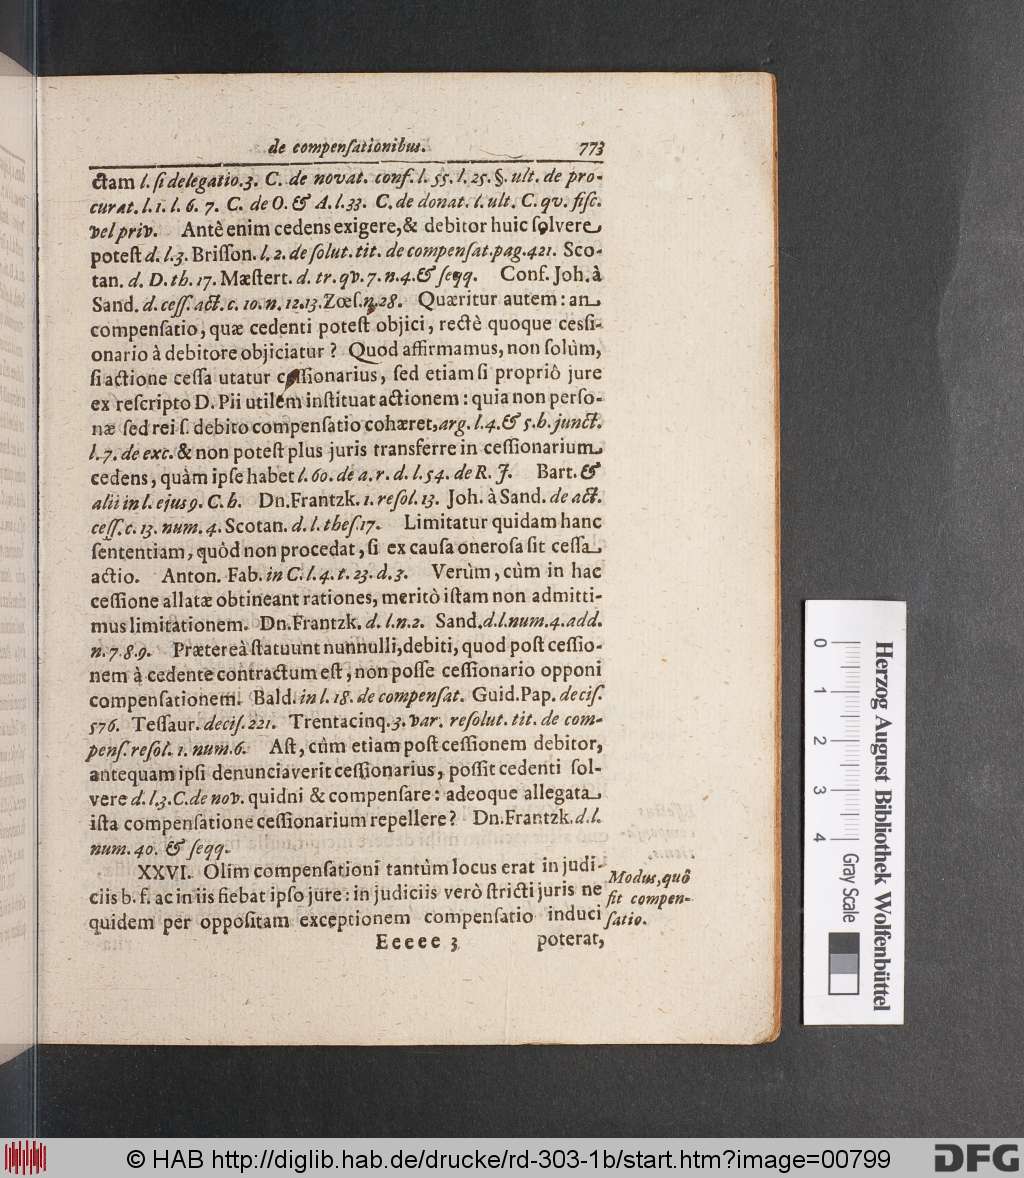 de compenſationibus. 773
ctam l. ſi delegatio. 3. C. de novat. conf. l. 55. l. 25. §. ult. de pro-
curat. l. 1. l. 6. 7. C. de O. & A. l. 33. C. de donat. l. ult. C. qv. fiſc.
vel priv. Antè enim cedens exigere, & debitor huic ſolvere
poteſt d. l. 3. Briſſon. l. 2. de ſolut. tit. de compenſat. pag. 421. Sco-
tan. d. D. th. 17. Mæſtert. d. tr. qv. 7. n. 4. & ſeqq. Conf. Joh. à
Sand. d. ceſſ. act. c. 10. n. 12. 13. Zœſ. n. 28. Quæritur autem: an
compenſatio, quæ cedenti poteſt objici, rectè quoque ceſſi-
onario à debitore objiciatur? Quod affirmamus, non ſolùm,
ſi actione ceſſa utatur ceſſionarius, ſed etiam ſi propriô jure
ex reſcripto D. Pii utilem inſtituat actionem: quia non perſo-
næ ſed rei ſ. debito compenſatio cohæret, arg. l. 4. & 5. h. junct.
l. 7. de exc. & non poteſt plus juris transferre in ceſſionarium
cedens, quàm ipſe habet l. 60. de a. r. d. l. 54. de R. J. Bart. &
alii in l. ejus 9. C. h. Dn. Frantzk. 1. reſol. 13. Joh. à Sand. de act.
ceſſ. c. 13. num. 4. Scotan. d. l. theſ. 17. Limitatur quidam hanc
ſententiam, quòd non procedat, ſi ex cauſa oneroſa ſit ceſſa
actio. Anton. Fab. in C. l. 4. t. 23. d. 3. Verùm, cùm in hac
ceſſione allatæ obtineant rationes, meritò iſtam non admitti-
mus limitationem. Dn. Frantzk. d. l. n. 2. Sand. d. l. num. 4. add.
n. 7. 8. 9. Prætereà ſtatuunt nunnulli, debiti, quod poſt ceſſio-
nem à cedente contractum eſt, non poſſe ceſſionario opponi
compenſationem. Bald. in l. 18. de compenſat. Guid. Pap. deciſ.
576. Teſſaur. deciſ. 221. Trentacinq. 3. var. reſolut. tit. de com-
penſ. reſol. 1. num. 6. Aſt, cùm etiam poſt ceſſionem debitor,
antequam ipſi denunciaverit ceſſionarius, poſſit cedenti ſol-
vere d. l. 3. C. de nov. quidni & compenſare: adeoque allegata
iſta compenſatione ceſſionarium repellere? Dn. Frantzk. d. l.
num. 40. & ſeqq.
XXVI. Olim compenſationi tantùm locus erat in judi-
ciis b. f. ac in iis fiebat ipſo jure: in judiciis verò ſtricti juris ne
quidem per oppoſitam exceptionem compenſatio induci
Modus, quô
ſit compen-
ſatio.
Eeeee 3 poterat,
0 1 2 3 4
Herzog August Bibliothek Wolfenbüttel
Gray Scale
© HAB http://diglib.hab.de/drucke/rd-303-1b/start.htm?image=00799
DFG